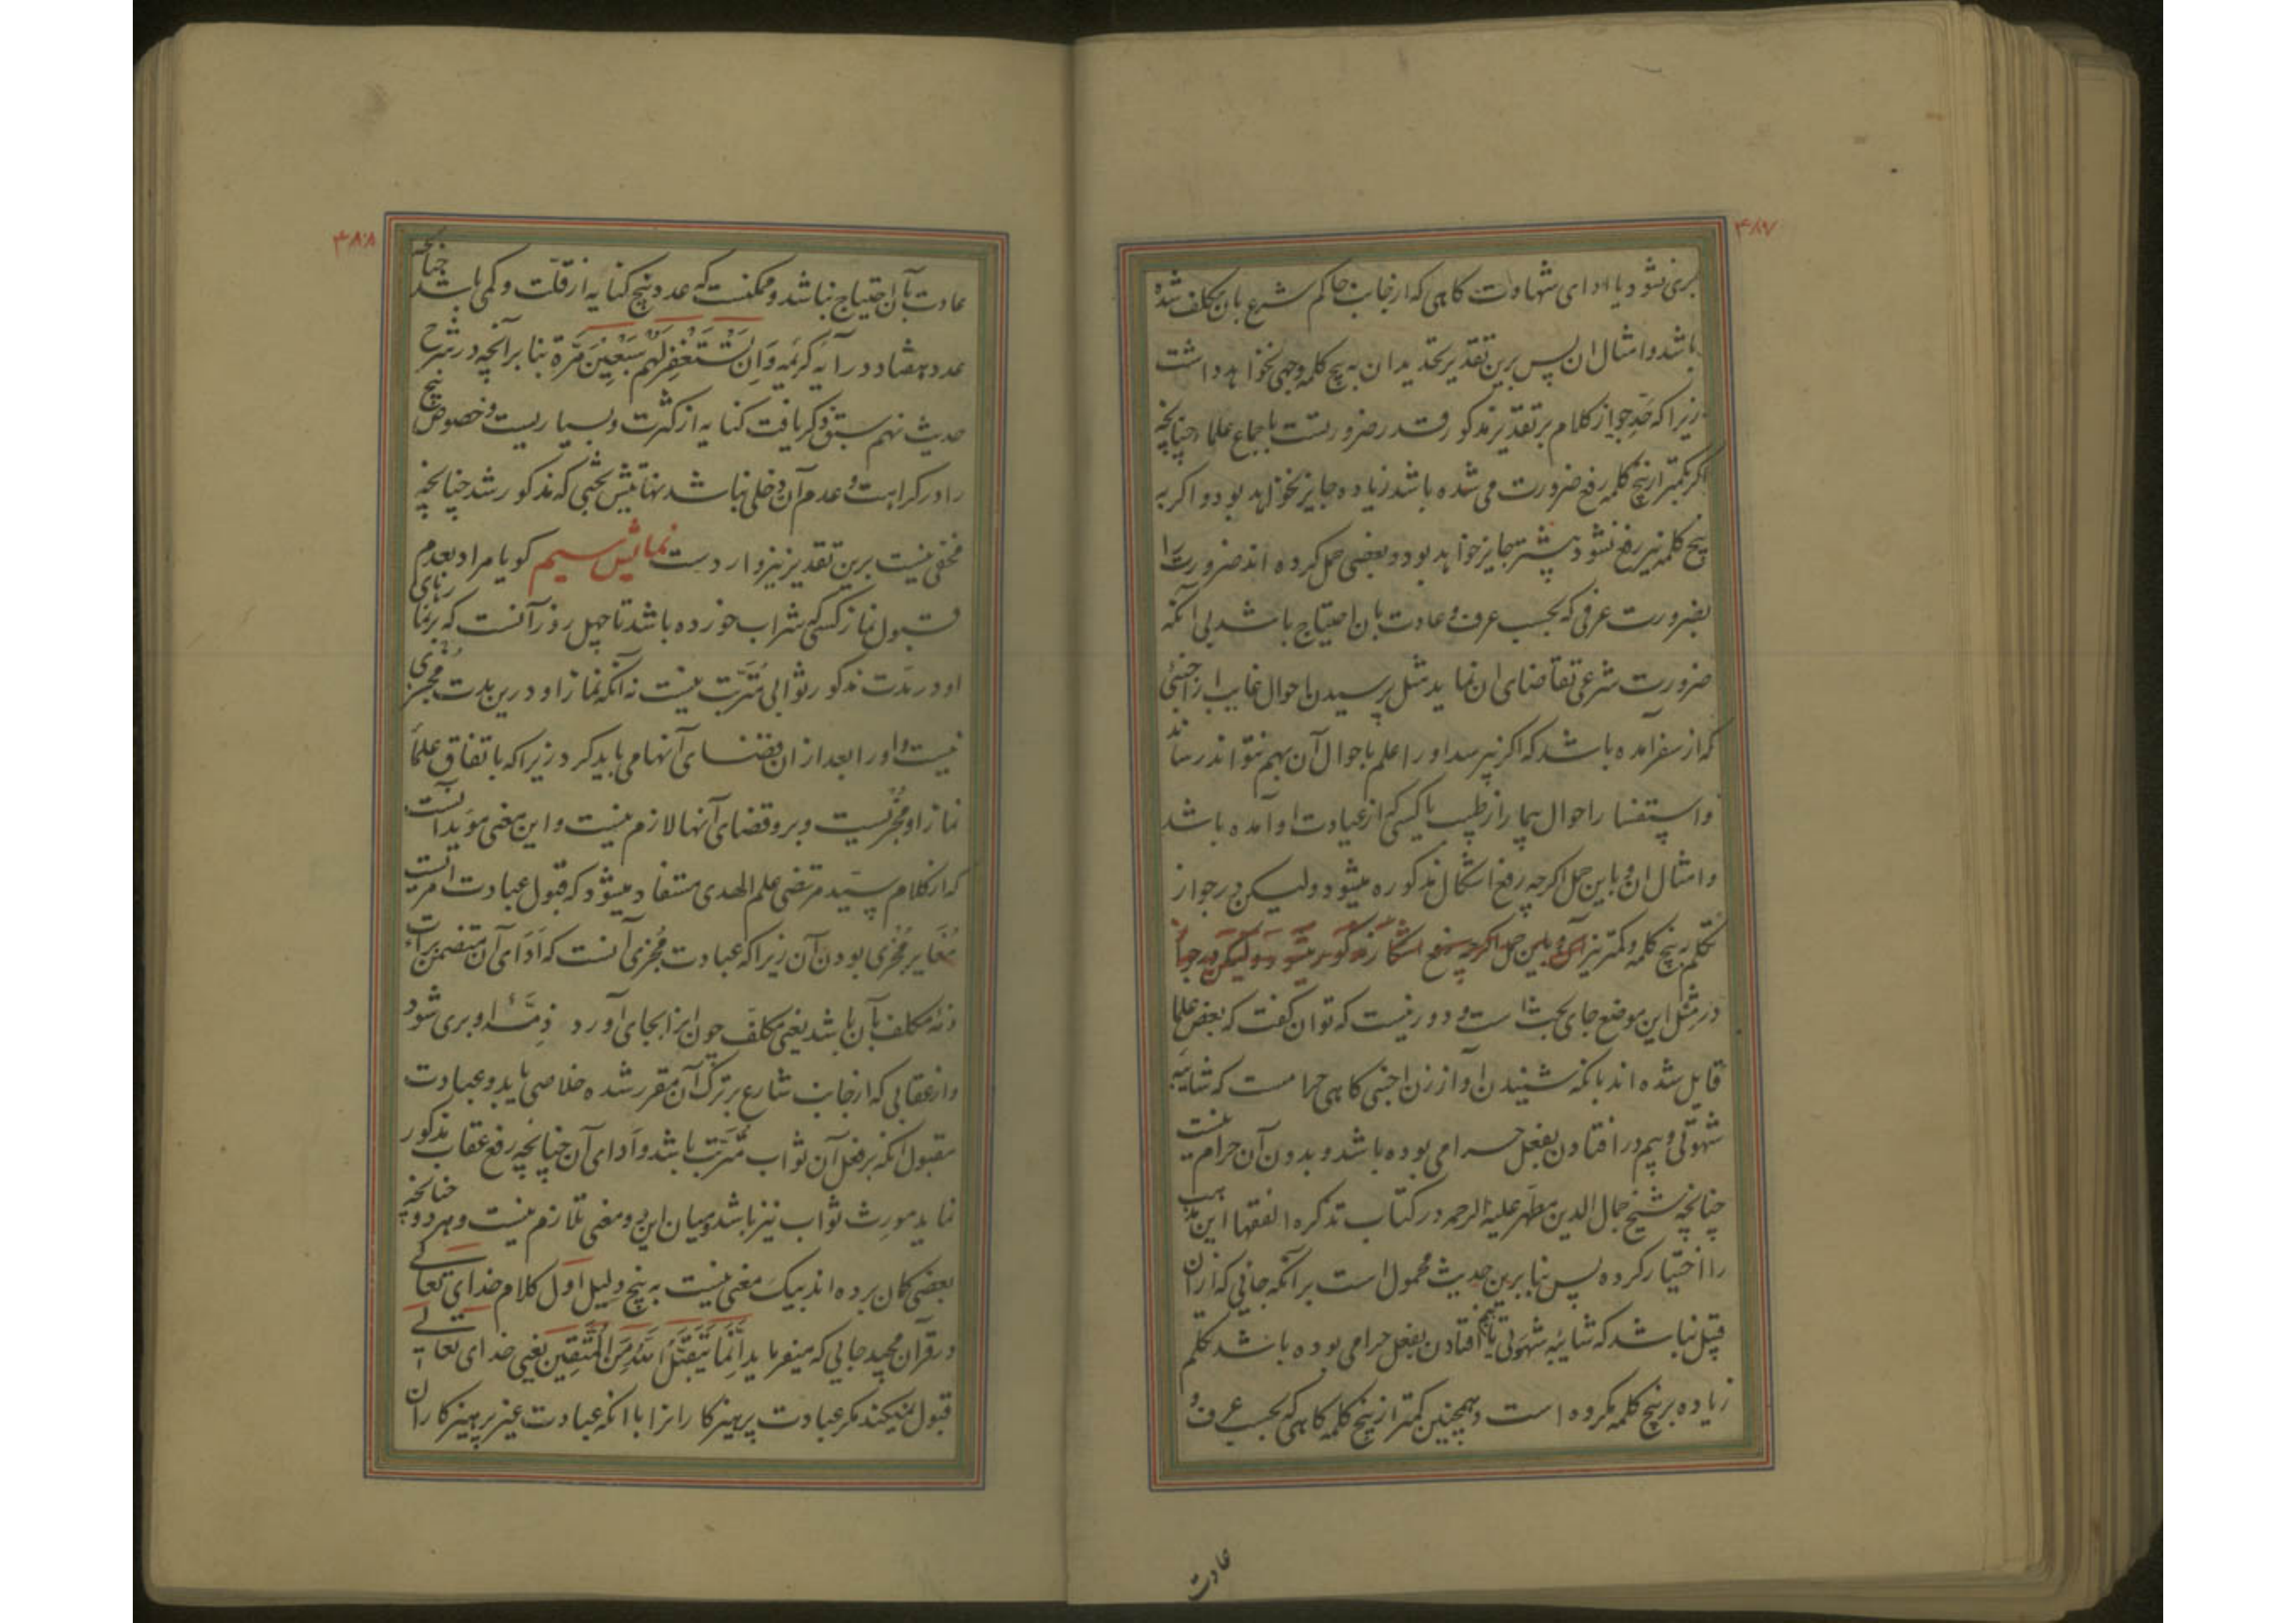 ۴۸۷
بری نشود یا ادای شهادت کاهی که از جانب حاکم شرع بان مکلف شده
باشد و امثال ان پس برین تقدیر تحدید ان به پنج کلمه وجهی نخواهد داشت
زیرا که حد جواز کلام بر تقدیر مذکور قدر ضرورتست باجماع علما چنانچه
اکر بکمتر از پنج کلمه رفع ضرورت می شده باشد زیاده جایز نخواهد بود و اکر به
پنج کلمه نیز رفع نشود بیشتر جایز خواهد بود و بعضی حمل کرده اند ضرورت را
بضرورت عرفی که بحسب عرف و عادت بان احتیاج باشد بی انکه
ضرورت شرعی تقاضای ان نماید مثل پرسیدن احوال غایب از اجنبئی
که از سفر آمده باشد که اکر نپرسد او را علم باحوال آن بهم نتواند رساند
و استفسار احوال بیمار از طبیب یا کسی که از عیادت او آمده باشد
و امثال ان و باین حمل اکرچه رفع اشکال مذکوره میشود ولیکن در جواز
تکلم به پنج کلمه و کمتر نیز ان و باین حمل اکرچه رفع اشکال مذکور میشود ولیکن در جواز
در مثل این موضع جای بحث است و دور نیست که توان کفت که بعض علما
قایل شده اند بانکه شنیدن آواز زن اجنبی کاهی حرامست که شایبه
شهوتی و بیم در افتادن بفعل حرامی بوده باشد و بدون آن حرام نیست
چنانچه شیخ جمال الدین مطهر علیه الرحمه در کتاب تذکره الفقها این مذهب
را اختیار کرده پس بنا برین حدیث محمول است بر آنکه جائی که از ان
قبیل نباشد که شایبه شهوتی یا بیم افتادن بفعل حرامی بوده باشد تکلم
زیاده بر پنج کلمه مکروه است و همچنین کمتر از پنج کلمه کاهی که بحسب عرف و
عادت
۴۸۸
عادت بآن احتیاج نباشد و ممکنست که عدد پنج کنایه از قلت و کمی باشد چنانچه
عدد هفتاد در آیه کریمه وَاِن تَسْتَغْفِرْ لَهُمْ سَبْعِینَ مَرَّةً بنا بر آنچه در شرح
حدیث نهم سبق ذکر یافت کنایه از کثرت و بسیاریست و خصوص پنج
را در کراهت و عدم آن دخلی نباشد نهایتش بحثی که مذکور شد چنانچه
مخفی نیست برین تقدیر نیز واردست نمایش سیم کویا مراد بعدم
قبول نماز کسی که شراب خورده باشد تا چهل روز آنست که بر نمازهای
او در مدت مذکور ثوابی مُتَرتّب نیست نه آنکه نماز او درین مدت مُجْزی
نیست و او را بعد از ان قضای آنها می باید کرد زیرا که باتفاق علمأ
نماز او مُجْزیست و بر و قضای آنها لازم نیست و این معنی مؤید آنست
که از کلام سیّد مرتضی علم الهدی مستفاد میشود که قبول عبادت امریست
مُغایر مُجْزی بودن آن زیرا که عبادت مُجْزی آنست که اَدَای آن متضمن براءت
ذمّه مکلف بآن باشد یعنی مکلّف چون انرا بجای آورد ذِمَّۀ او بری شود
و از عقابی که از جانب شارع بر ترک آن مقرر شده خلاصی یابد و عبادت
مقبول انکه بر فعل آن ثواب مُتَرتّب باشد و اَدای آن چنانچه رفع عقاب مذکور
نماید مورِث ثواب نیز باشد و میان این دو معنی تلازم نیست و هر دو چنانچه
بعضی کمان برده اند بیک معنی نیست به پنج دلیل اول کلام خدای تعالی
در قرآن مجید جایی که میفرماید اِنَّمَا یَتَقَبَّلُ اللهُ مِنَ الْمُتَّقِینَ یعنی خدای تعالی
قبول نمیکند مکر عبادت پرهیزکارانرا با انکه عبادت غیر پرهیزکاران